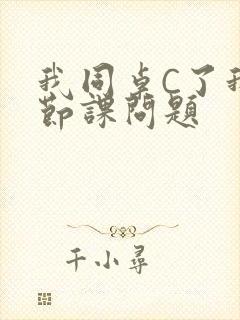 我同桌C了我
节课问题
千小寻